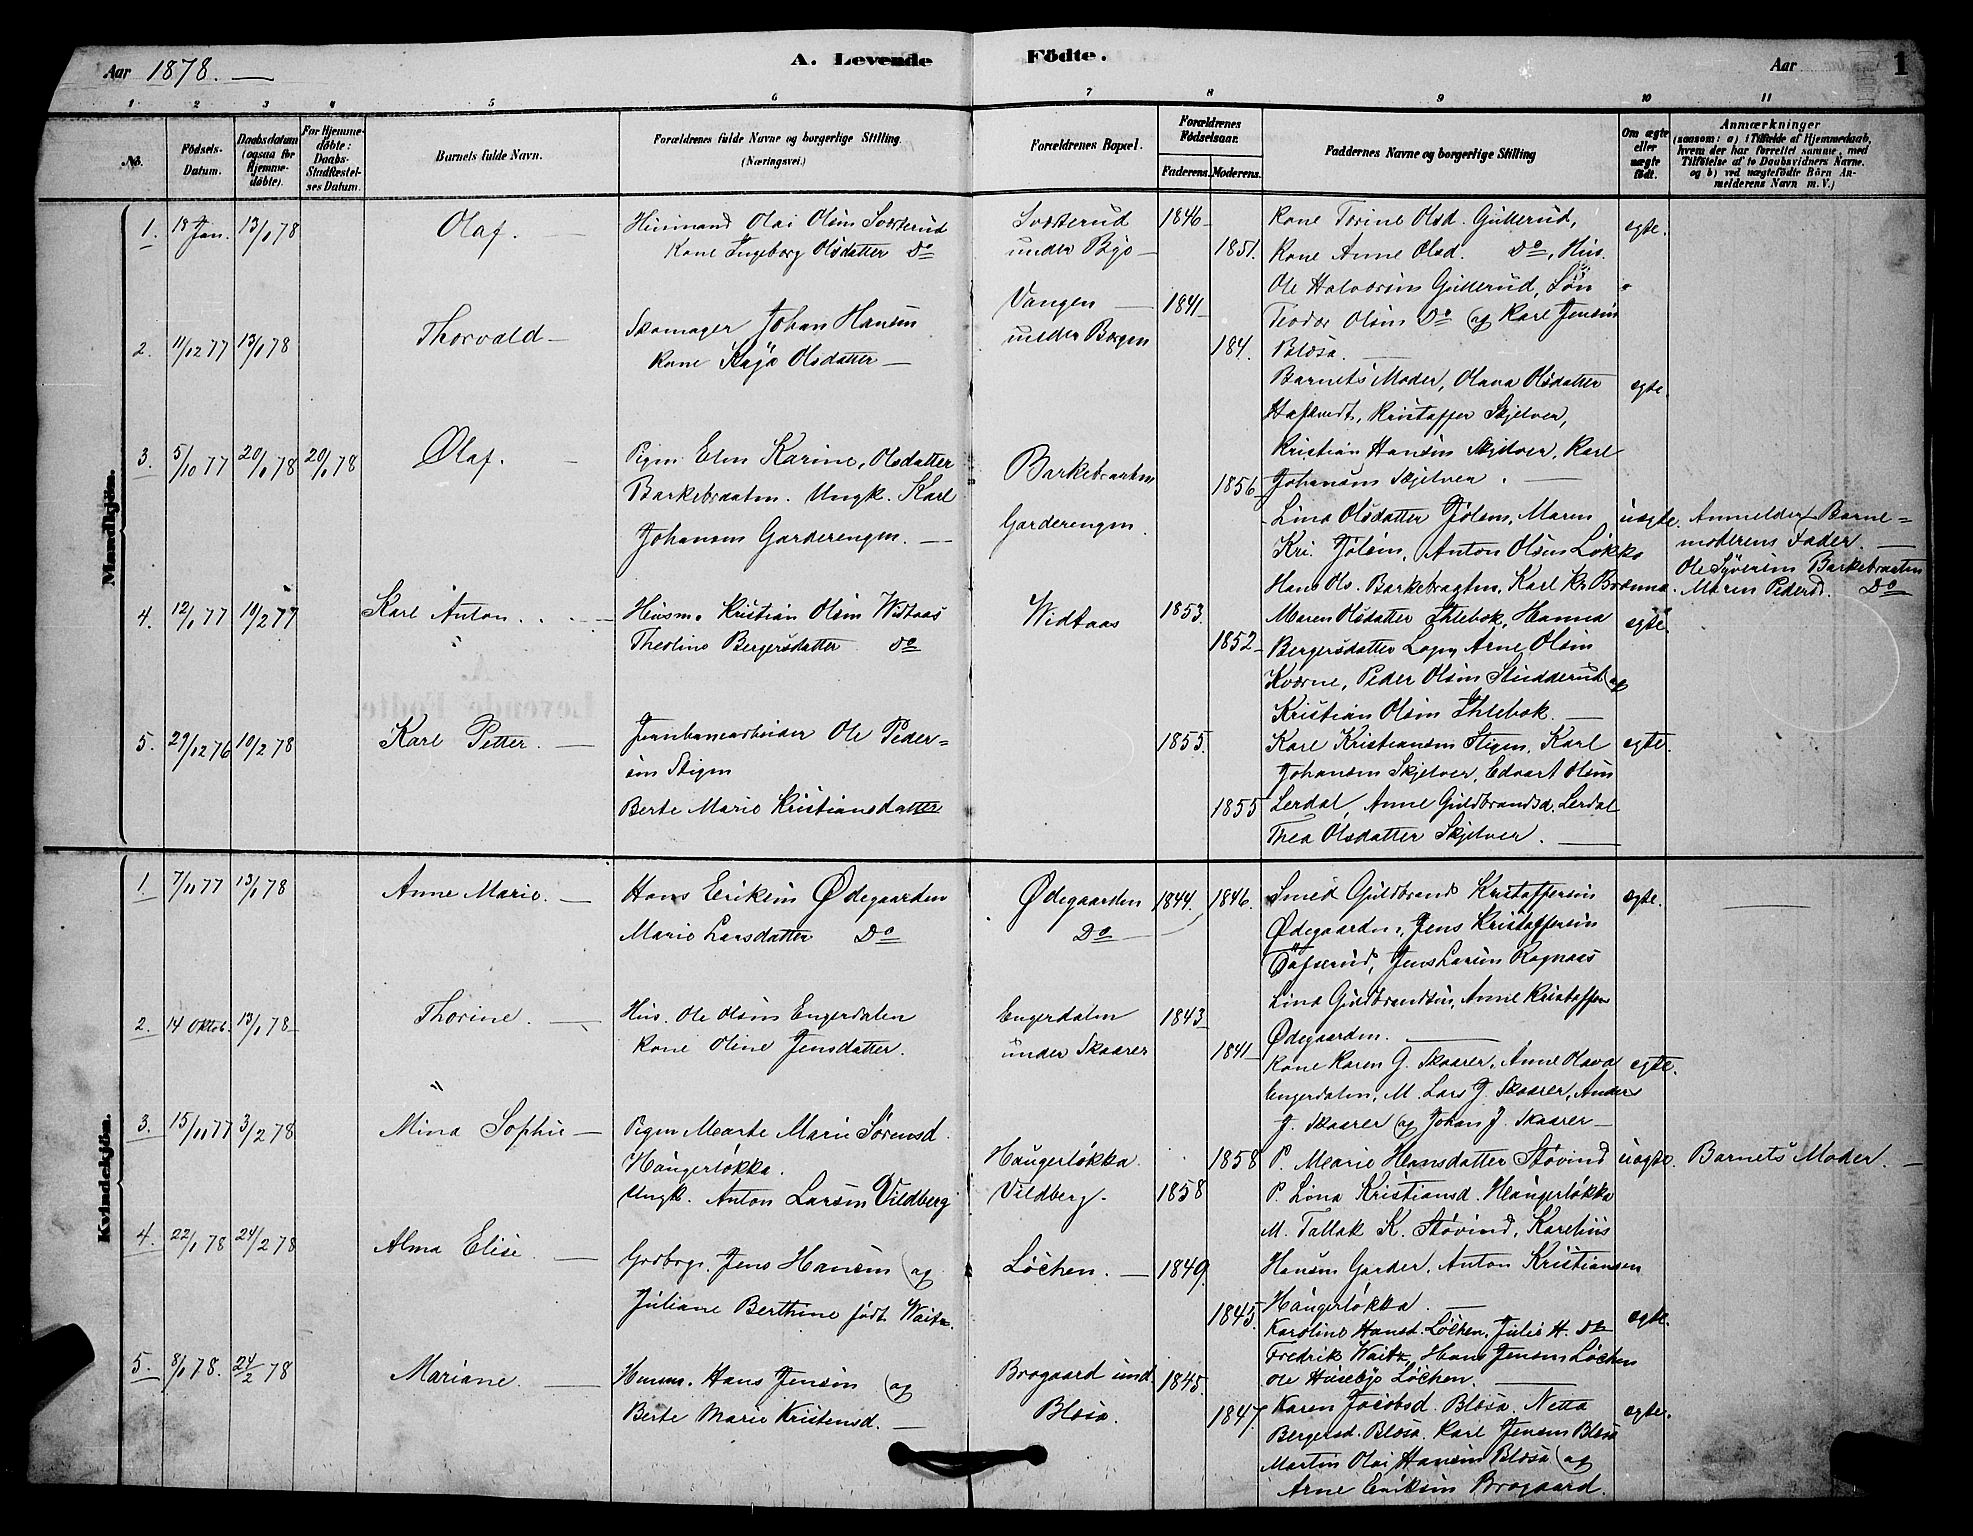 Aar 1878.
A. Levende Fødte.
Aar
1
1 2 3 4 5 6 7 8 9 10 11
No.
Fødsels-Datum.
Daabsdatum (ogsaa for Hjemme-døbte).
For Hjemme-døbte: Daabs-Stadfæstel-ses Datum.
Barnets fulde Navn.
Forældrenes fulde Navne og borgerlige Stilling. (Næringsvei.)
Forældrenes Bopæl.
Forældrenes Fødselsaar.
Faderens. Moderens.
Faddernes Navne og borgerlige Stilling
Om ægte eller uægte født.
Anmærkninger
(saasom: a) i Tilfælde af Hjemmedaab, hvem der har forrettet samme, med Tilføielse af to Daabsvidners Navne. og b) ved uægtefødte Børn An-melderens Navn m. V.)
Mandkjøn.
1. 18 Jan. 13/1 78 Olaf.
Husmand Olai Olsen
Kone Ingeborg Olsdatter Do
under Byo
1846
1851.
Kone Torine Olsd. Gullerud,
Kone Anne Olsd. Do, Hus.
Ole Halvorsen Gullerud, Søn
Teodor Olsen Do og Karl Jensen
Blæsa.
egte.
2. 11/12 77 13/1 78 Thorvald
Skomager Johan Hansen
Kone Kaja Olsdatter
Vangen
under Borgen
1841
184.
Barnets Moder, Olava Olsdatter
Kristoffer Skjelver,
Kristian Hansen Skjelver, Karl
Johansen Skjelver.
egte.
3. 5/10 77 20/1 78 20/1 78 Olaf.
Pigen Elen Karine, Olsdatter
Barkebraaten. Ungk. Karl
Johansen Garderengen.
Barkebraaten
Garderengen.
1856
Lina Olsdatter Maren
Kri. Anton Olsen Løkka
Hans Ols. Barkebraaten, Karl Kr.
uegte.
Anmelder Barne=
moderens Fader.
Ole Syversen Barkebraaten
Maren Pedersd. Do
4. 12/1 77 10/2 77 Karl Anton.
Husm. Kristian Olsen Widtaas
Theoline Bergersdatter Do
Widtaas
1853.
1852
Maren Olsdatter Ihlebek, Hanna
Bergersdatter Arne Olsen
Kværne, Peder Olsen Studderud og
Kristian Olsen Ihlebek.
egte.
5. 29/12 76 10/2 78 Karl Petter.
Jernbanearbeider Ole Peder=
sen Stigen
Berte Marie Kristiansdatter
1855.
1855
Karl Kristiansen Stigen, Karl
Johansen Skjelver, Edvart Olsen
Lerdal, Anne Guldbrandsd. Lerdal
Thea Olsdatter Skjelver.
egte.
Kvindekjøn.
1. 7/11 77 13/1 78 Anne Marie.
Hans Eriksen Ødegaarden
Marie Larsdatter Do
Ødegaarden
Do
1844. 1846.
Smed Guldbrand Kristoffersen
Ødegaarden, Jens Kristoffersen
Jens Larsen Ragnaas
Lina Guldbrandsen, Anne Kristoffersen
Ødegaarden.
egte.
2. 14 Oktob. 13/1 78 Thorine.
Hus. Ole Olsen Engerdalen
Kone Oline Jensdatter.
Engerdalen
under Skaarer
1843
1841
Kone Karen G. Skaarer, Anne Olava
Engerdalen, M. Lars J. Skaarer, Anders
J. Skaarer og Johan J. Skaarer
egte.
3. 15/11 77 3/2 78 Mina Sophie
Pigen Marte Marie Sørensd.
Haugerløkka.
Ungk. Anton Larsen Vildberg
Haugerløkka.
Vildberg.
1858
1858
P. Marie Hansdatter Støvind
P. Lina Kristiansd. Haugerløkka
M. Tallak K. Støvind, Karelius
Hansen Garder, Anton Kristiansen
Haugerløkka.
uegte.
Barnets Moder.
4. 22/1 78 24/2 78 Alma Elise.
Grdbrgr. Jens Hansen og
Juliane Berthine født Waitz.
Løchen.
1849.
1845.
Karoline Hansd. Løchen, Julie H. Do
Fredrik Waitz, Hans Jensen Løchen
Ole Husebye Løchen.
egte.
5. 8/1 78. 24/2 78 Mariane.
Husm. Hans Jensen og
Berte Marie Kristensd.
Brogaard und.
Blæsa.
1845.
1847.
Karen Jacobsd. Blæsa. Netta
Bergersd. Blæsa. Karl Jensen Blæsa
Martin Olai Hansen Blæsa og
Arne Eriksen Brogaard.
egte.